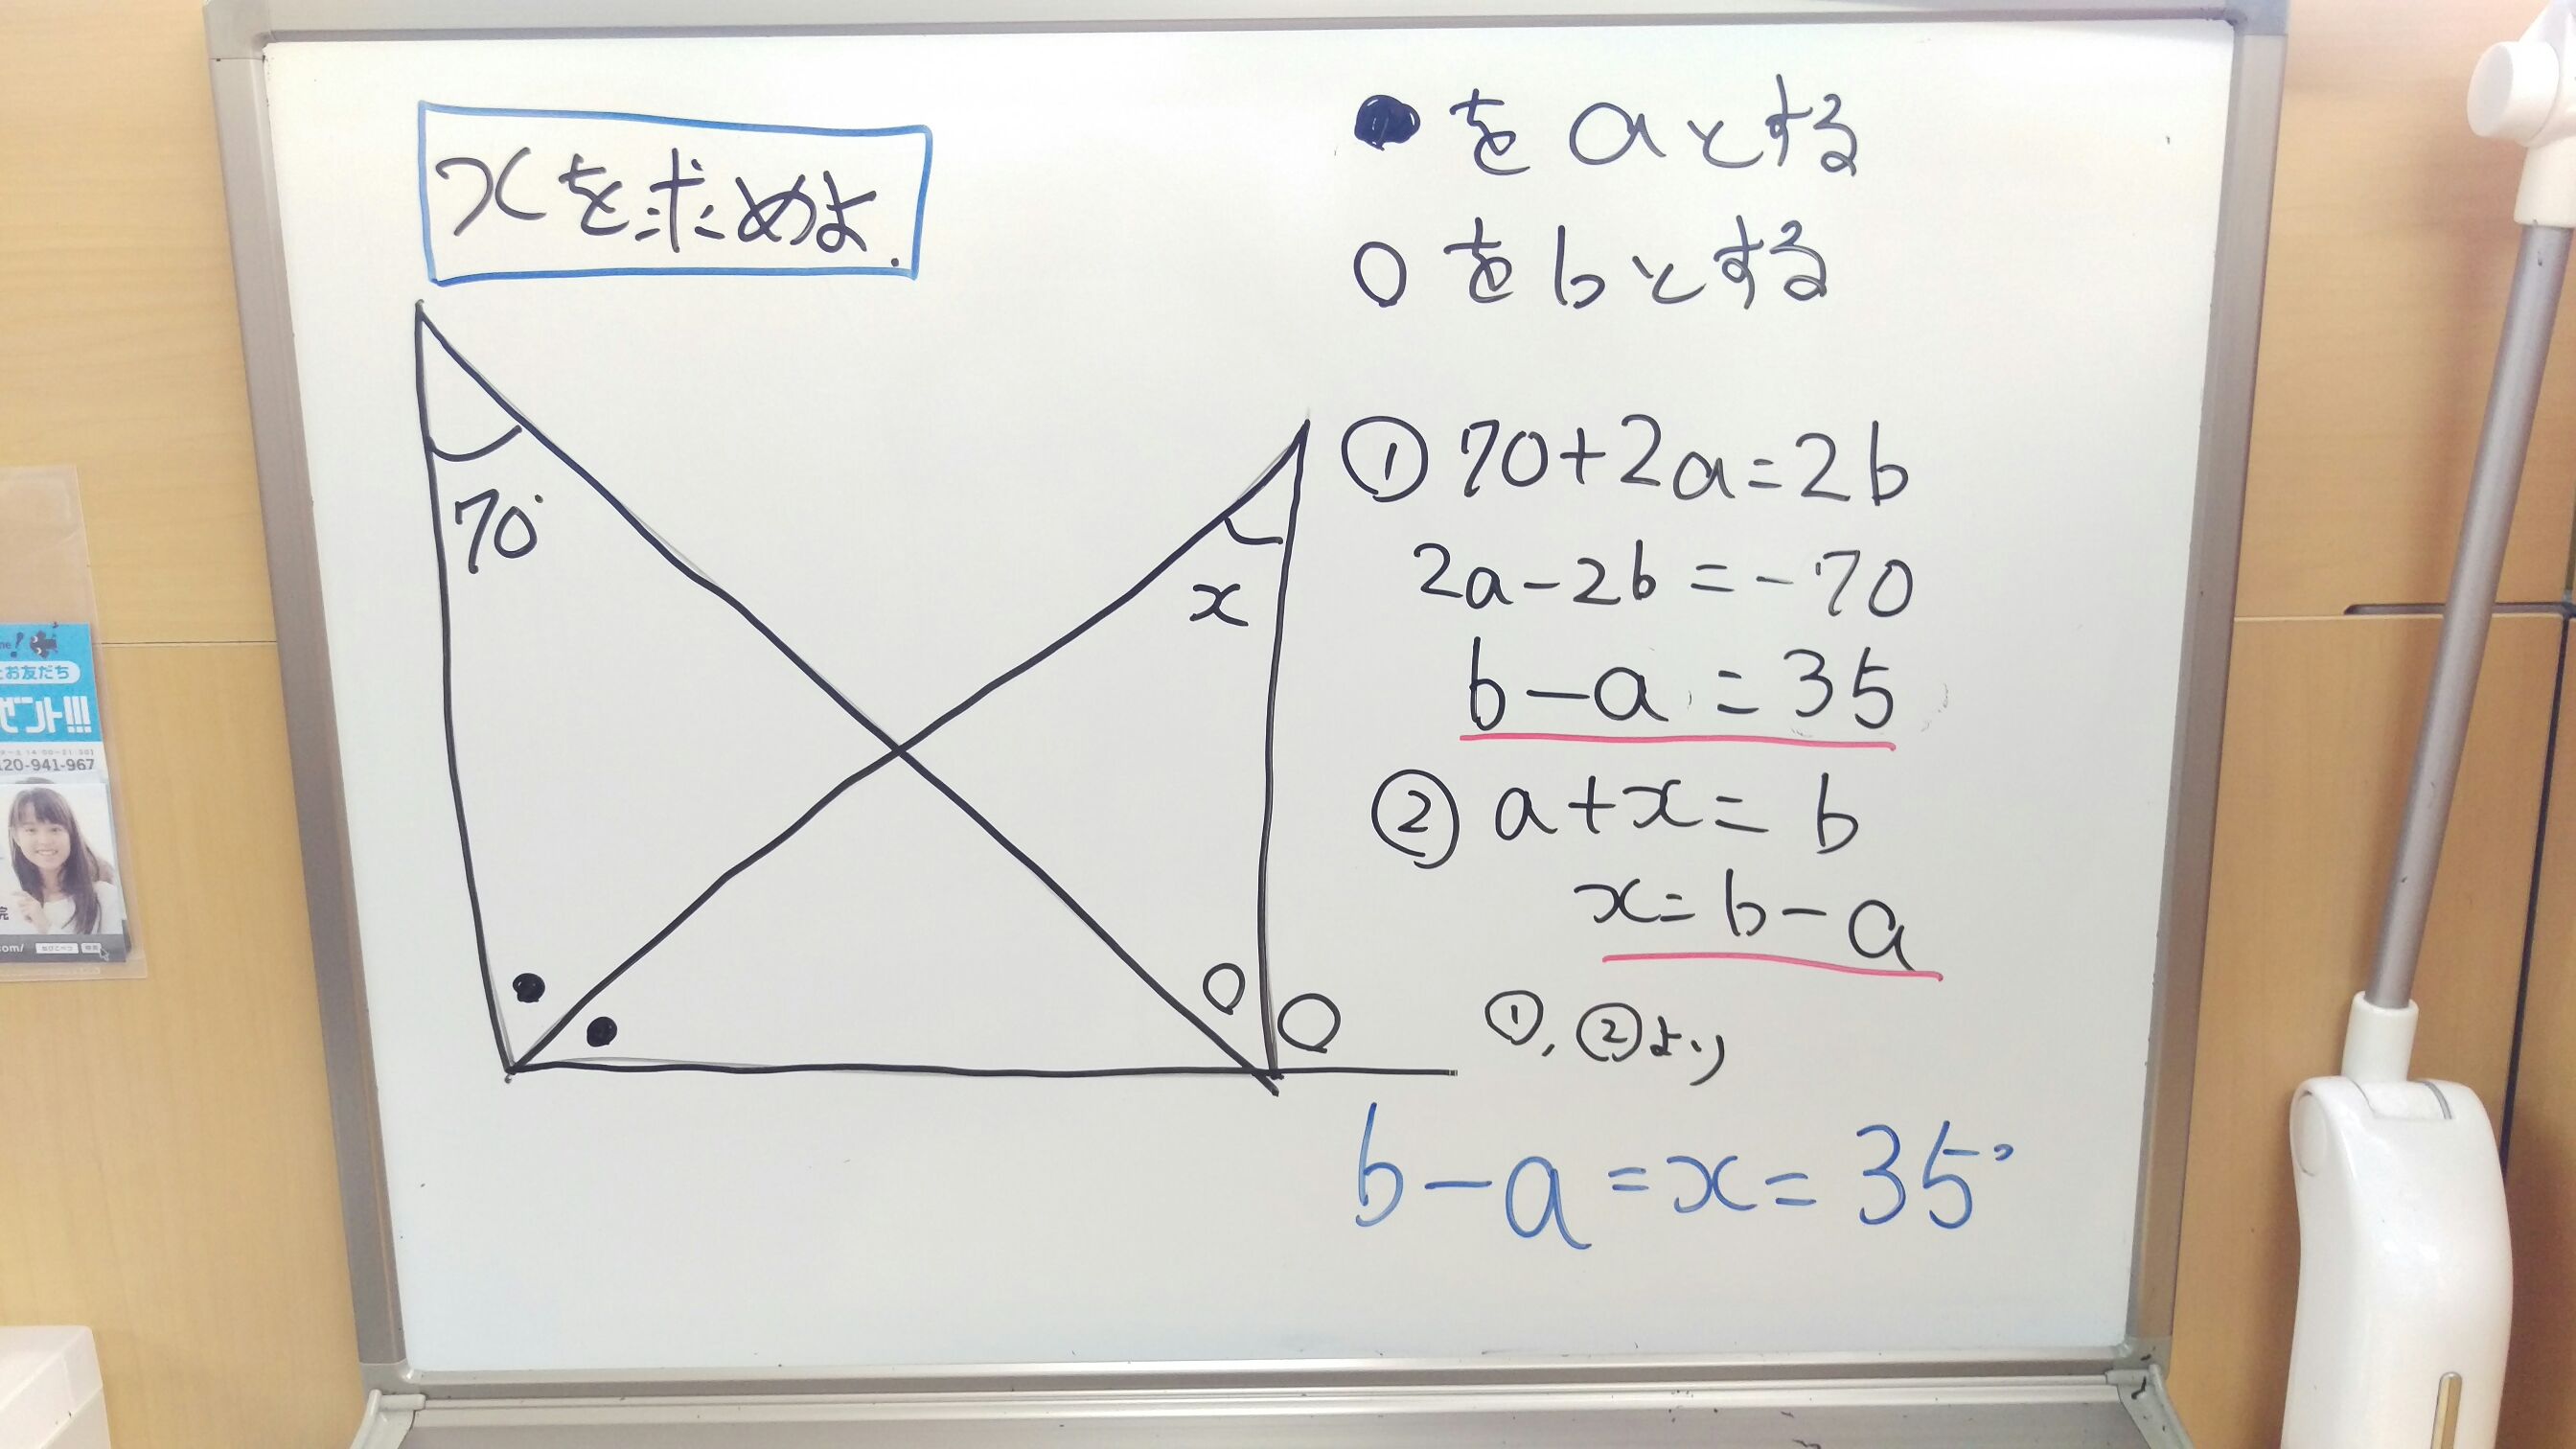 xを求めよ.
●をaとする
○をbとする
70°
x
① 70+2a=2b
2a-2b=-70
b-a=35
② a+x=b
x=b-a
①,②より
b-a=x=35°
お友だち
ゼント!!!
20-941-967
com/